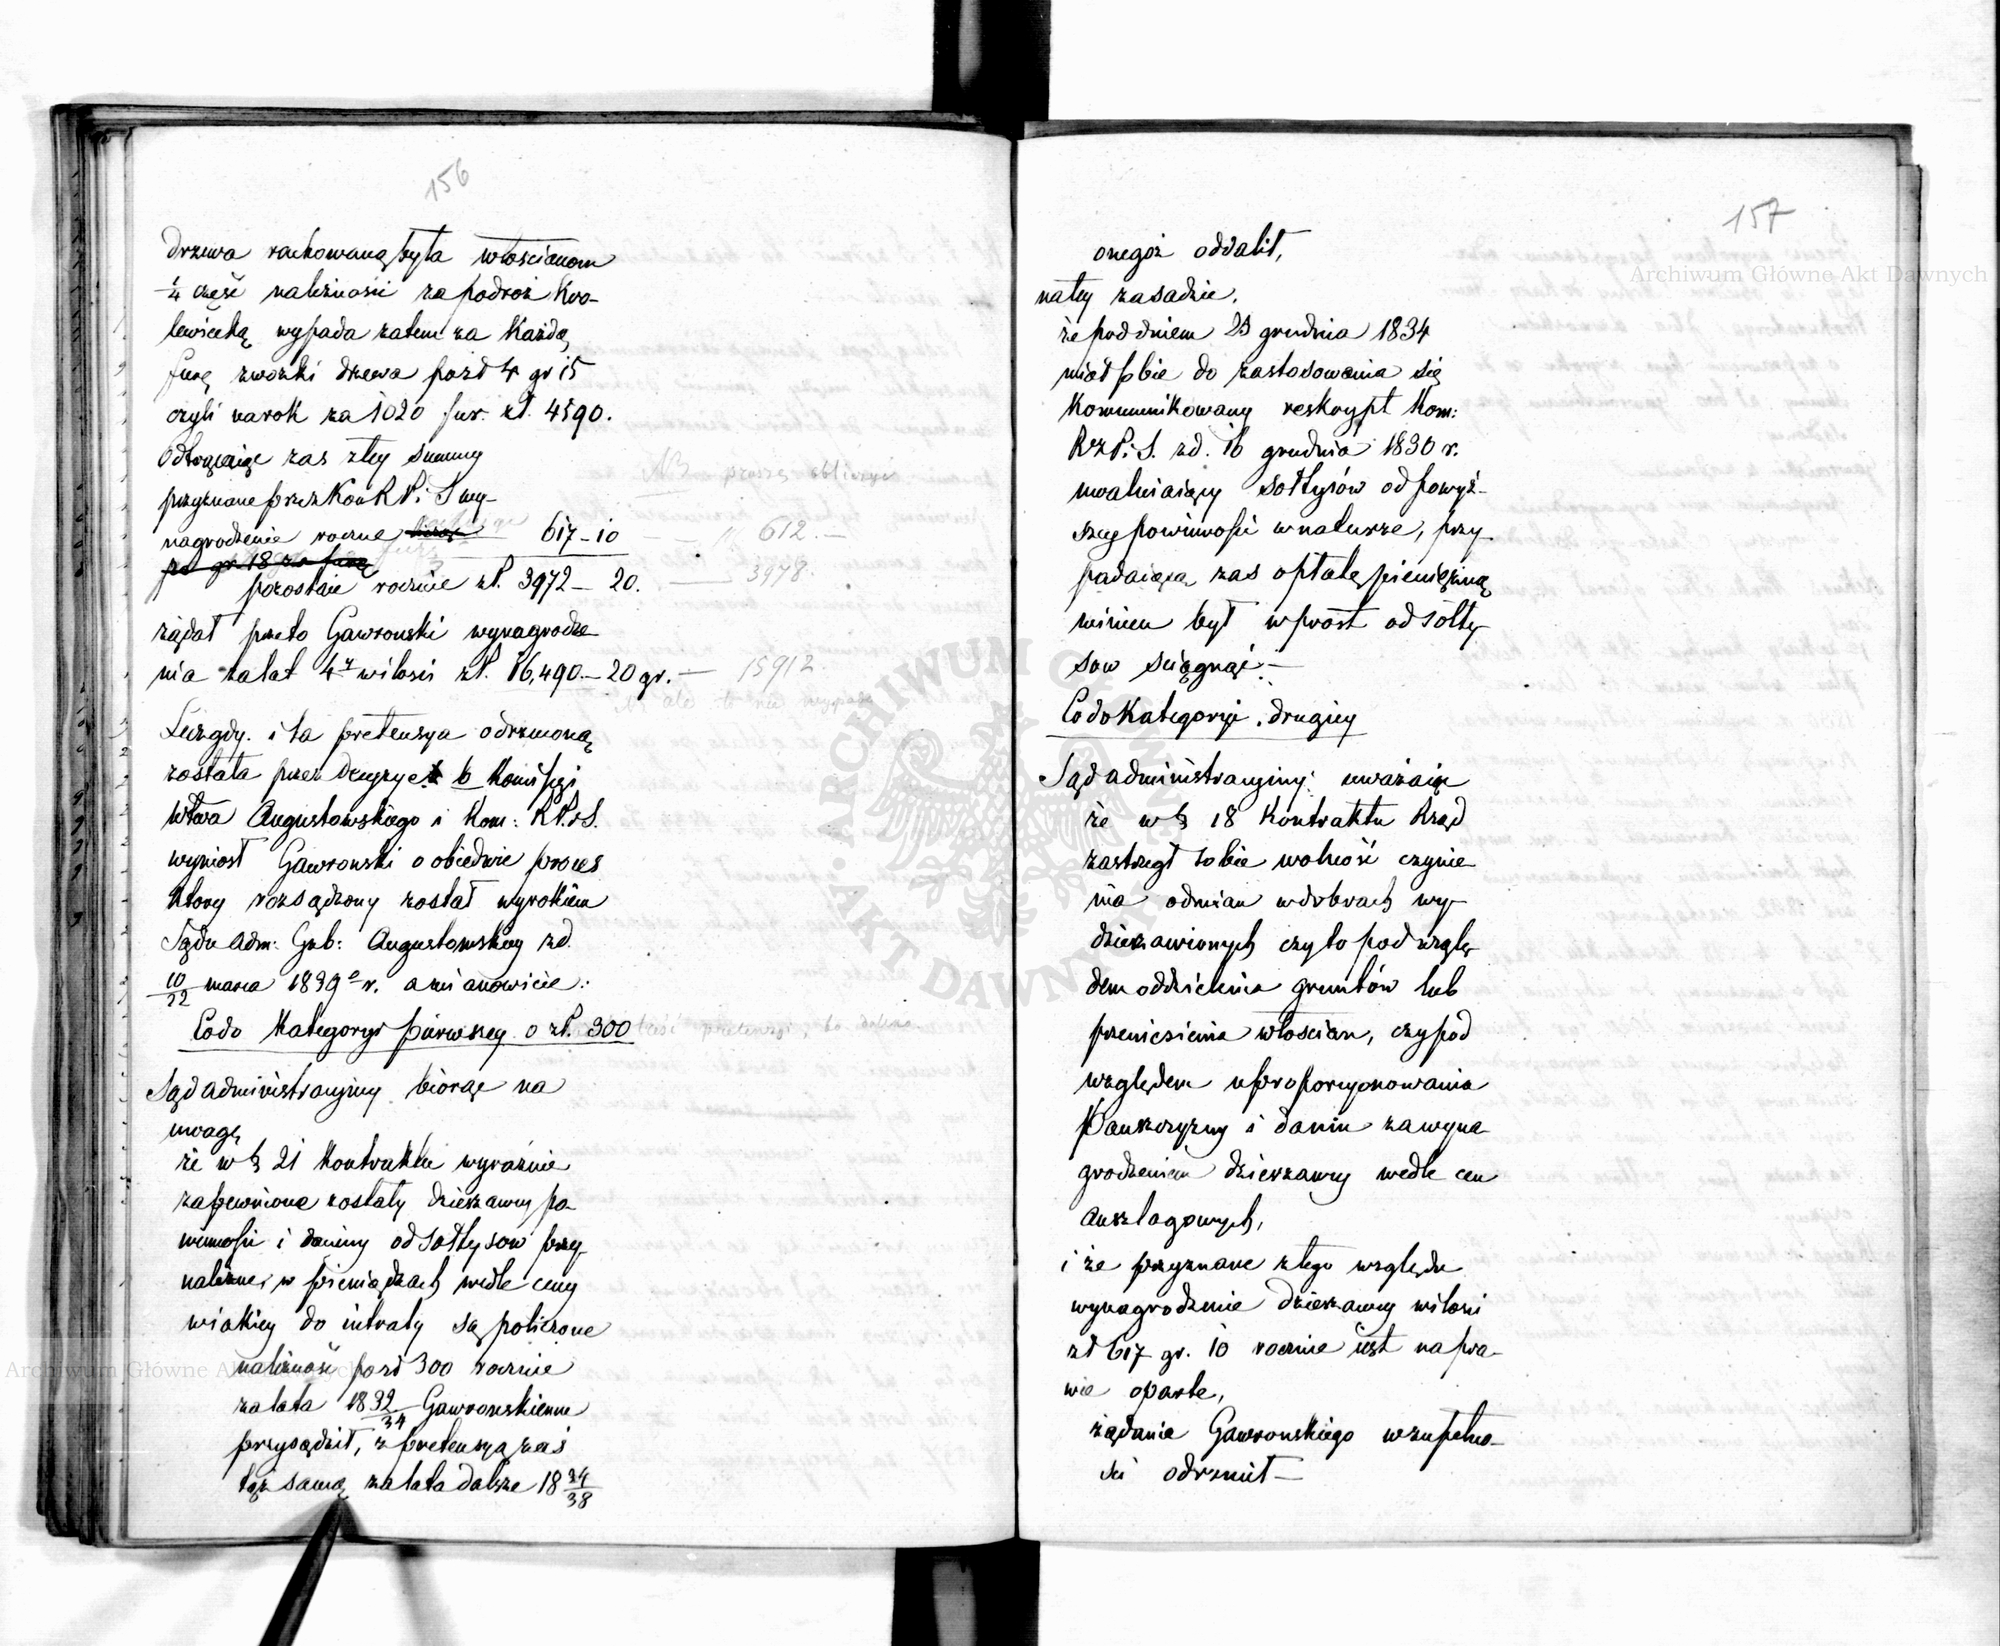 156
drzewa rachowaną była włościanom
1/4 część należności za podróż Kro-
lewiecką wypada zatem za każdą
furę zwózki drzewa po zł 4 gr 15
czyli na rok za 1020 fur. zł. 4590.
Odtrąciwszy zaś z tey summy
przyznane przez Kom R P. i S wy-
nagrodzenie roczne 617–10 — „ 612.–
po gr 18 za furę
pozostaie rocznie zł. 3972 – 20. — 3978.
NB proszę obliczyć
żądał przeto Gawronski wynagrodze
nia za lat 4ry i zł. 16,490.–20 gr. — 15912.
NB ale to nie wypada
Lecz gdy i ta pretensya odrzuconą
została przez decyzye Kommissyi
Wtwa Augustowskiego i Kom: R P. i S.
wyniosł Gawronski o obiedwie proces
który rozsądzony został wyrokiem
Sądu Adm: Gub: Augustowskiey z d.
10/22 marca 1839o r. a mianowicie:
Co do Kategoryi pierwszey o zł. 300
Sąd administracyiny biorąc na
uwagę
że w § 21 Kontraktu wyraźnie
zapewnione zostały dzierzawcy po-
winności i daniny od Sołtysow przy-
należne, w pieniądzach wedle ceny
w iakiey do intraty są policzone
należność po zł 300 rocznie
za lata 1832/34 Gawronskiemu
przysądził, z pretensyą zaś
tąż samą za lata dalsze 1834/38
157
onegoż oddalił,
na tey zasadzie,
że pod dniem 23 grudnia 1834
miał sobie do zastosowania się
kommunikowany reskrypt Kom:
R P. i S. z d. 16 grudnia 1830 r.
uwalniaiący sołtysów od powyż-
szey powinności w naturze, przy-
padaiącą zaś opłatę pieniężną
winien był wprost od sołty
sow sciągnąć.–
Co do Kategoryi drugiey
Sąd administracyiny: uważaiąc
że w § 18 Kontraktu Rząd
zastrzegł sobie wolność czynie
nia odmian w dobrach wy-
dzierzawionych czy to pod wzglę
dem oddzielenia gruntów lub
przeniesienia włościan, czy pod
względem uproporcyonowania
Pańszczyzny i danin za wyna
grodzeniem dzierzawcy wedle cen
anszlagowych,
i że przyznane z tego względu
wynagrodzenie dzierzawcy w ilości
zł 617 gr. 10 rocznie iest na pra-
wie oparte,
żądanie Gawronskiego w zupełno-
ści odrzucił —